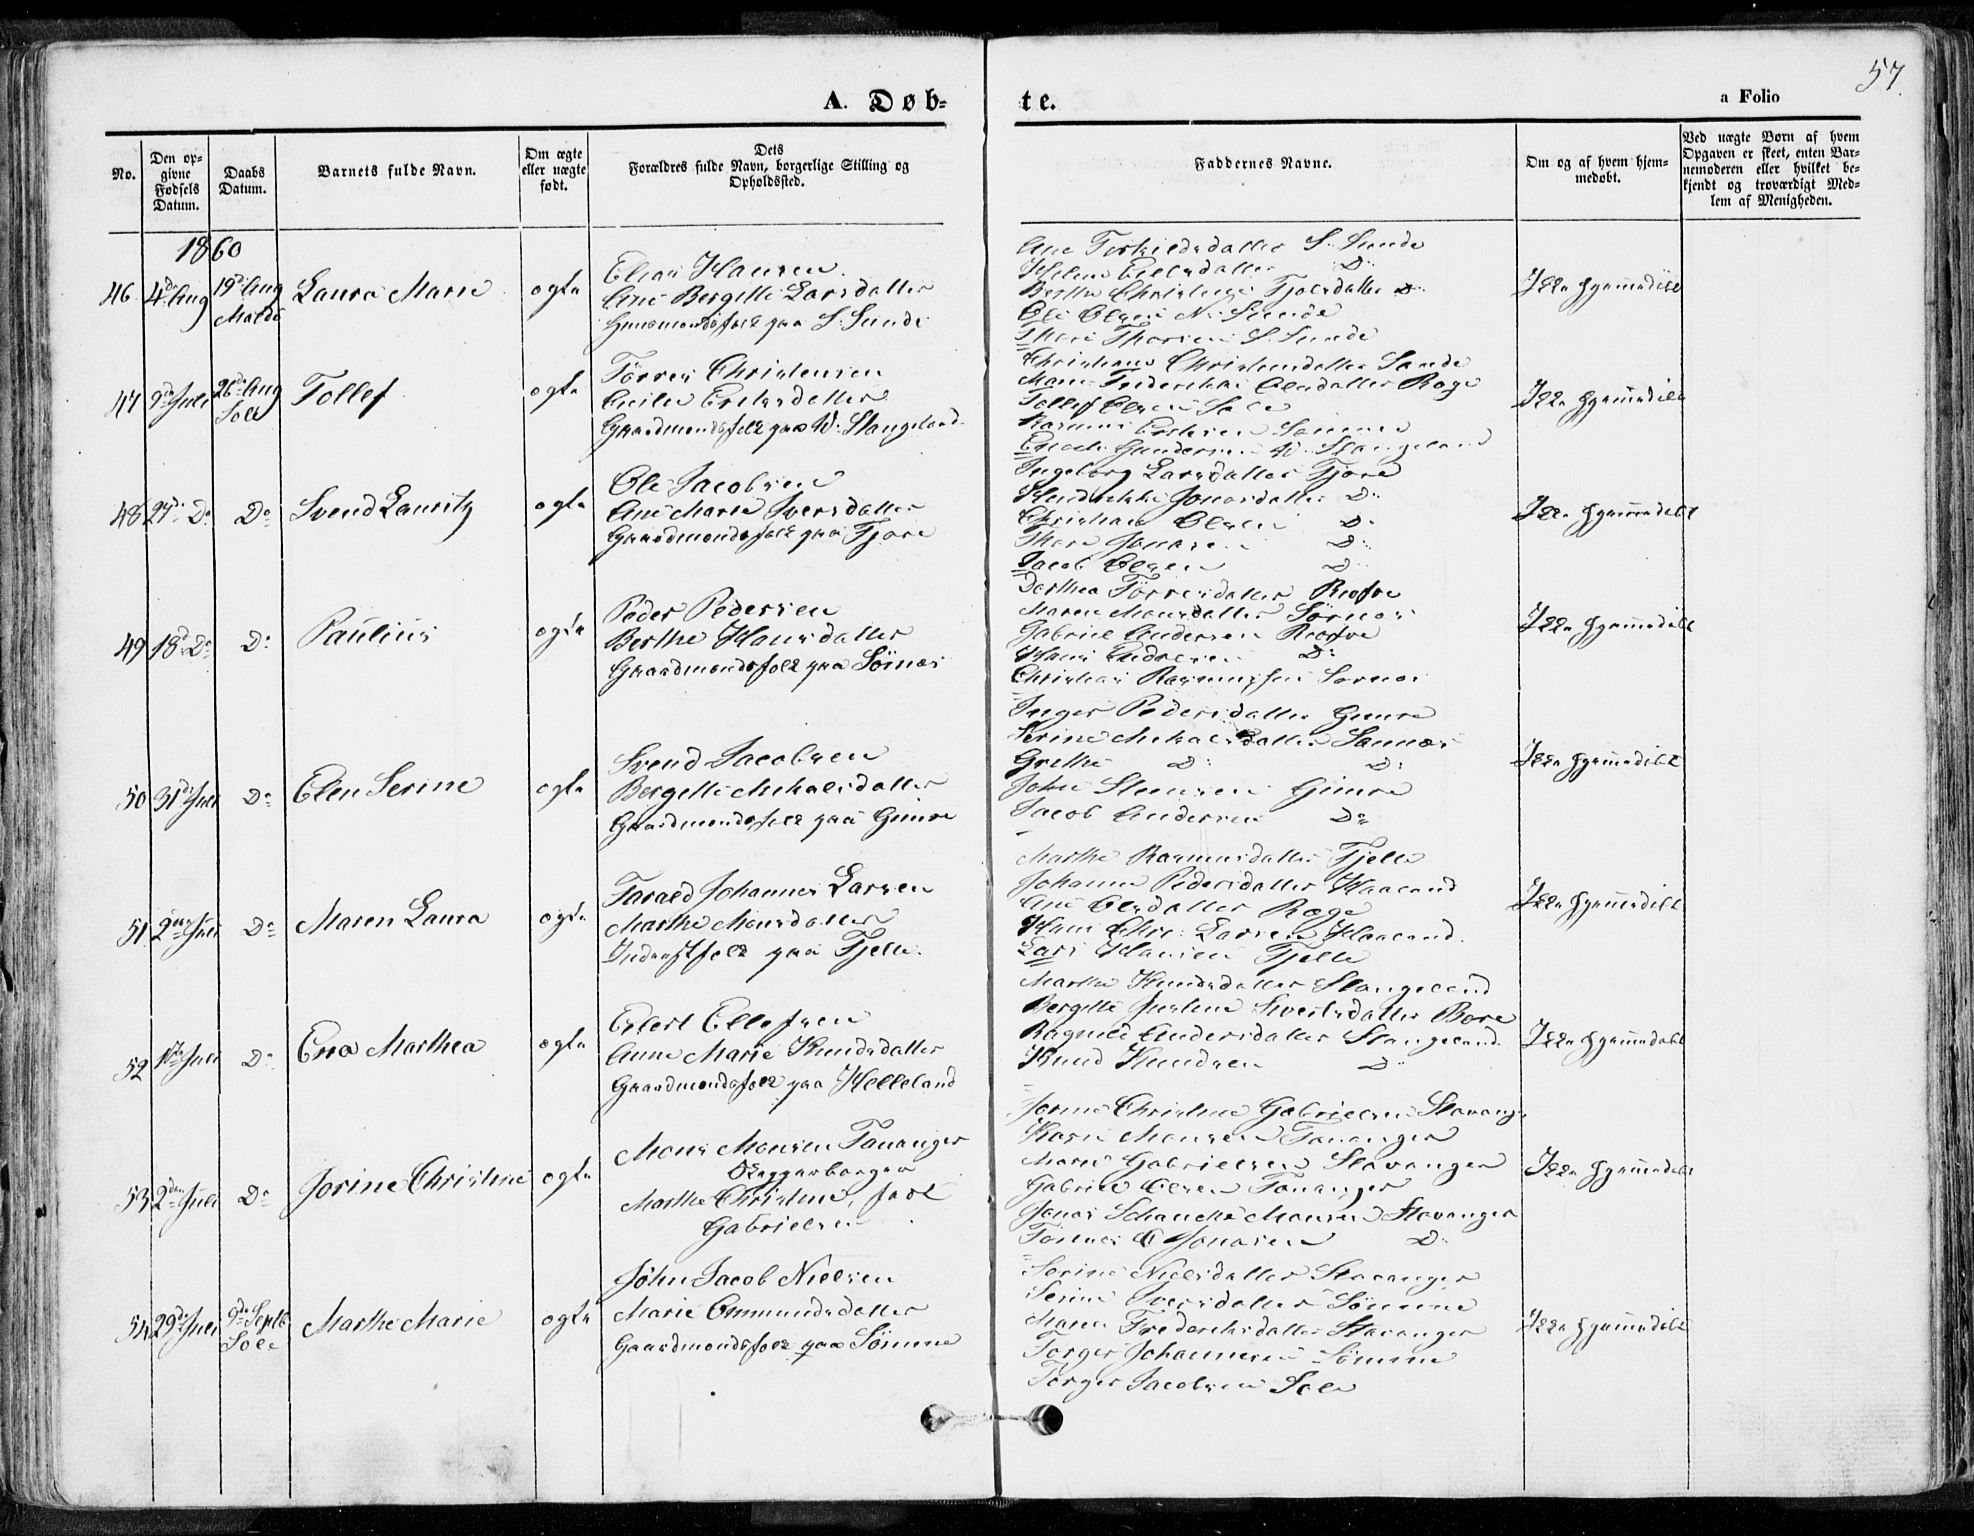 57.
A. Døb-
te.
a Folio
No.
Den op-
givne
Fødsels
Datum.
Daabs
Datum.
Barnets fulde Navn.
Om ægte
eller uægte
født.
Dets
Forældres fulde Navn, borgerlige Stilling og
Opholdssted.
Faddernes Navne.
Om og af hvem hjem-
medøbt.
Ved uægte Børn af hvem
Opgaven er skeet, enten Bar-
nemoderen eller hvilket be-
kjendt og troværdigt Med-
lem af Menigheden.
1860
46 4de Aug 19de Aug
Malde
Laura Marie
ægte
Elias Hansen
Ane Bergitte Larsdatter
Huusmandsfolk paa S. Sunde
Ane Torkildsdatter S. Sunde
Helene Eilersdatter Do
Berthe Christine Tjølsdatter Do
Ole Olsen N. Sunde
Thore Thorsen S. Sunde
Ikke hjemmedøbt
47 9de Juli 26de Aug
Sole
Tollef
ægte
Tørres Christensen
Cecilie Eriksdatter
Gaardmandsfolk paa W. Stangeland
Christiane Christensdatter Sande
Maren Frederikke Olsdatter Røge
Tollef Olsen Sole
Rasmus Eriksen Sømme
Enoch Gundersen W. Stangeland
Ikke hjemmedøbt
48 27de Do Do
Svend Lauritz
ægte
Ole Jacobsen
Ane Marie Iversdatter
Gaardmandsfolk paa Tjøre
Ingeborg Larsdatter Tjøre
Hendrikke Jonasdatter Do
Christian Olsen Do
Thore Jonasen Do
Jacob Olsen Do
Ikke hjemmedøbt
49 18de Do Do
Paulius
ægte
Peder Pedersen
Berthe Hansdatter
Gaardmandsfolk paa Sørnæs
Dorthea Tørresdatter
Maren Monsdatter Sørnæs
Gabriel Andersen
Hans Andersen Do
Christian Rasmussen Sørnæs
Ikke hjemmedøbt
50 31de Juli Do
Elen Serine
ægte
Svend Jacobsen
Bergitte Mikalsdatter
Gaardmandsfolk paa Gimre
Inger Pedersdatter Gimre
Serine Mikalsdatter Sannæs
Grethe Do Do
John Steensen Gimre
Jacob Andersen Do
Ikke hjemmedøbt
51 2den Juli Do
Maren Laura
ægte
Tarald Johannes Larsen
Marthe Monsdatter
Inderstfolk paa Fjelle
Marthe Rasmusdatter Fjelle
Johanne Pedersdatter Haaland
Ane Olsdatter Røge
Hans Chr: Larsen Haaland
Lars Hansen Fjelle
Ikke hjemmedøbt
52 Juli Do
Ena Marthea
ægte
Eilert Ellefsen
Anne Marie Knudsdatter
Gaardmandsfolk paa Helleland
Marthe Knudsdatter Stangeland
Bergitte Justine Sivertsdatter Bore
Ragnild Andersdatter Stangeland
Knud Knudsen Do
Ikke hjemmedøbt
53 2den Juli Do
Jorine Christine
ægte
Mons Monsen Tananger
Skipperborger
Marthe Christine, født
Gabrielsen
Jorine Christine Gabrielsen Stavang.
Karen Monsen Tananger
Maren Gabrielsen Stavanger
Gabriel Olsen Tananger
Jonas Schancke Monsen Stavanger
Tønnes O Jonasen Do
Ikke hjemmedøbt
54 29de Juli 9de Septb
Sole
Marthe Marie
ægte
John Jacob Nielsen
Marie Ommundsdatter
Gaardmandsfolk paa Sømme
Serine Nielsdatter Stavanger
Serine Iversdatter Sømme
Maren Frederiksdatter Stavanger
Torger Johannesen Sømme
Torger Jacobsen Sole
Ikke hjemmedøbt